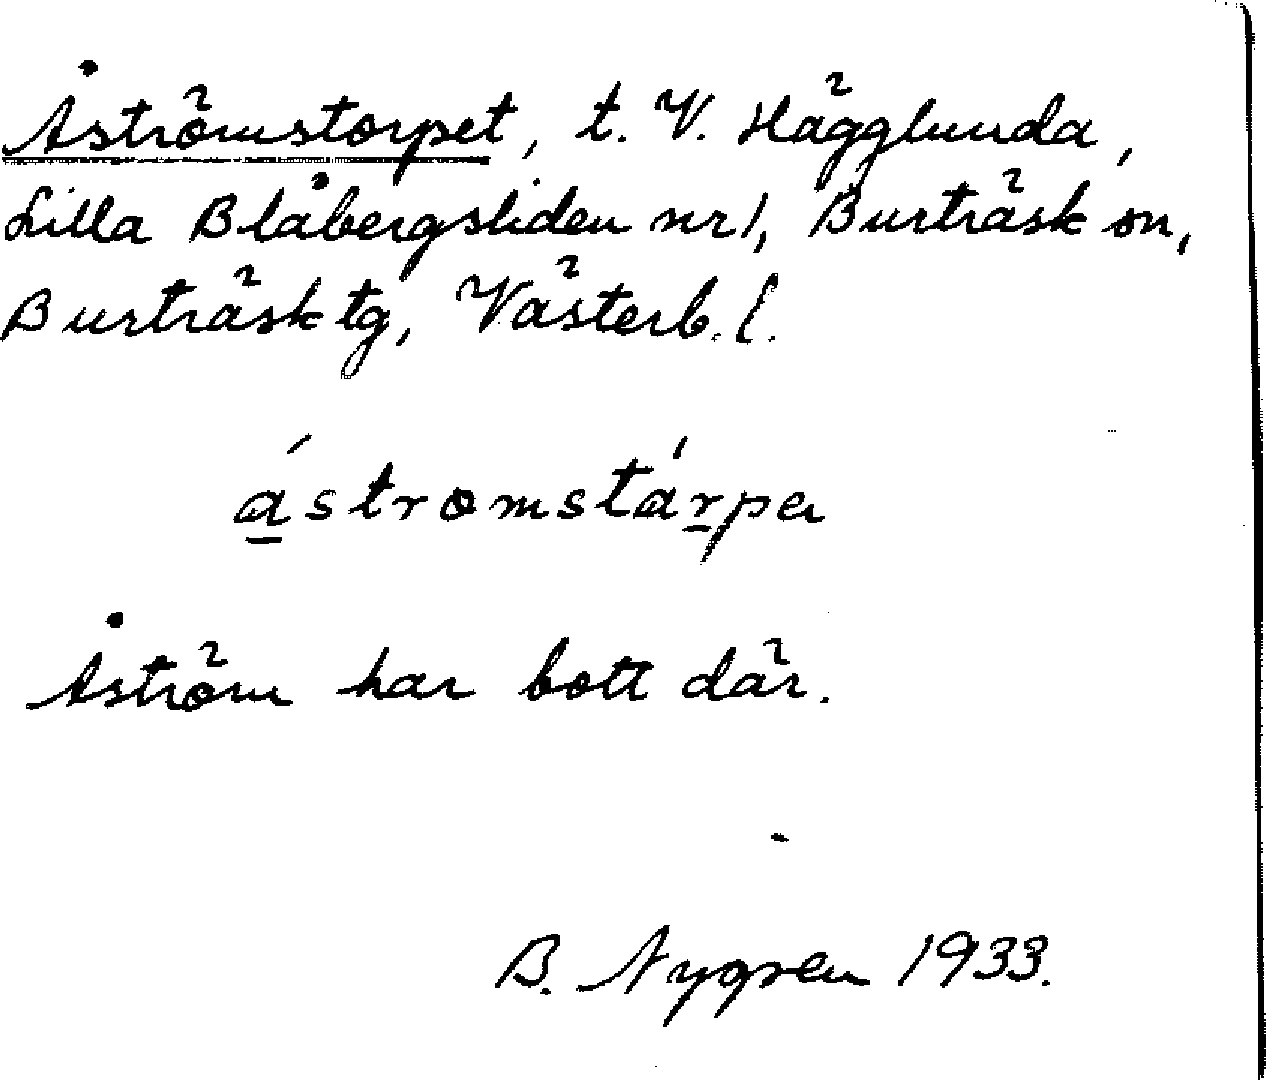 Åströmstorpet, t. V. Hägglunda,
Lilla Blåbergsliden nr 1, Burträsk sn,
Burträsk tg, Västerb. l.
ástromstárpa
Åström har bott där.
B. Nygren 1933.